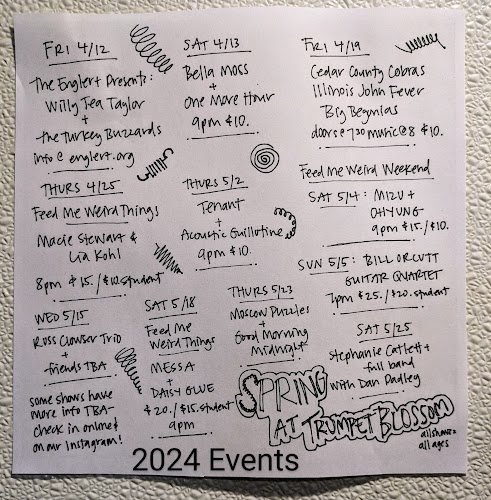 FRI 4/12
The Englert Presents:
Willy Tea Taylor
+
the Turkey Buzzards
info @ englert.org
SAT 4/13
Bella Moss
+
One More Hour
9pm $10.
FRI 4/19
Cedar County Cobras
Illinois John Fever
Big Begonias
doors @ 730 music @ 8 $10.
THURS 4/25
Feed Me Weird Things
Macie Stewart &
Lia Kohl
8pm $15./$10. student
THURS 5/2
Tenant
+
Acoustic Guillotine
9pm $10.
Feed Me Weird Weekend
SAT 5/4: MIZU +
OHYUNG
9pm $15./$10.
SUN 5/5: BILL ORCUTT
GUITAR QUARTET
7pm $25./$20. student
WED 5/15
Russ Clowser Trio
+
friends TBA
SAT 5/18
Feed Me
Weird Things
MESSA
+
DAISY GLUE
$20./$15. student
9pm
THURS 5/23
Moscow Puzzles
+
Good Morning
Midnight
SAT 5/25
Stephanie Catlett +
full band
with Dan Padley
some shows have
more info TBA-
check in online &
on our Instagram!
SPRING
AT TRUMPET BLOSSOM
all shows
all ages
2024 Events